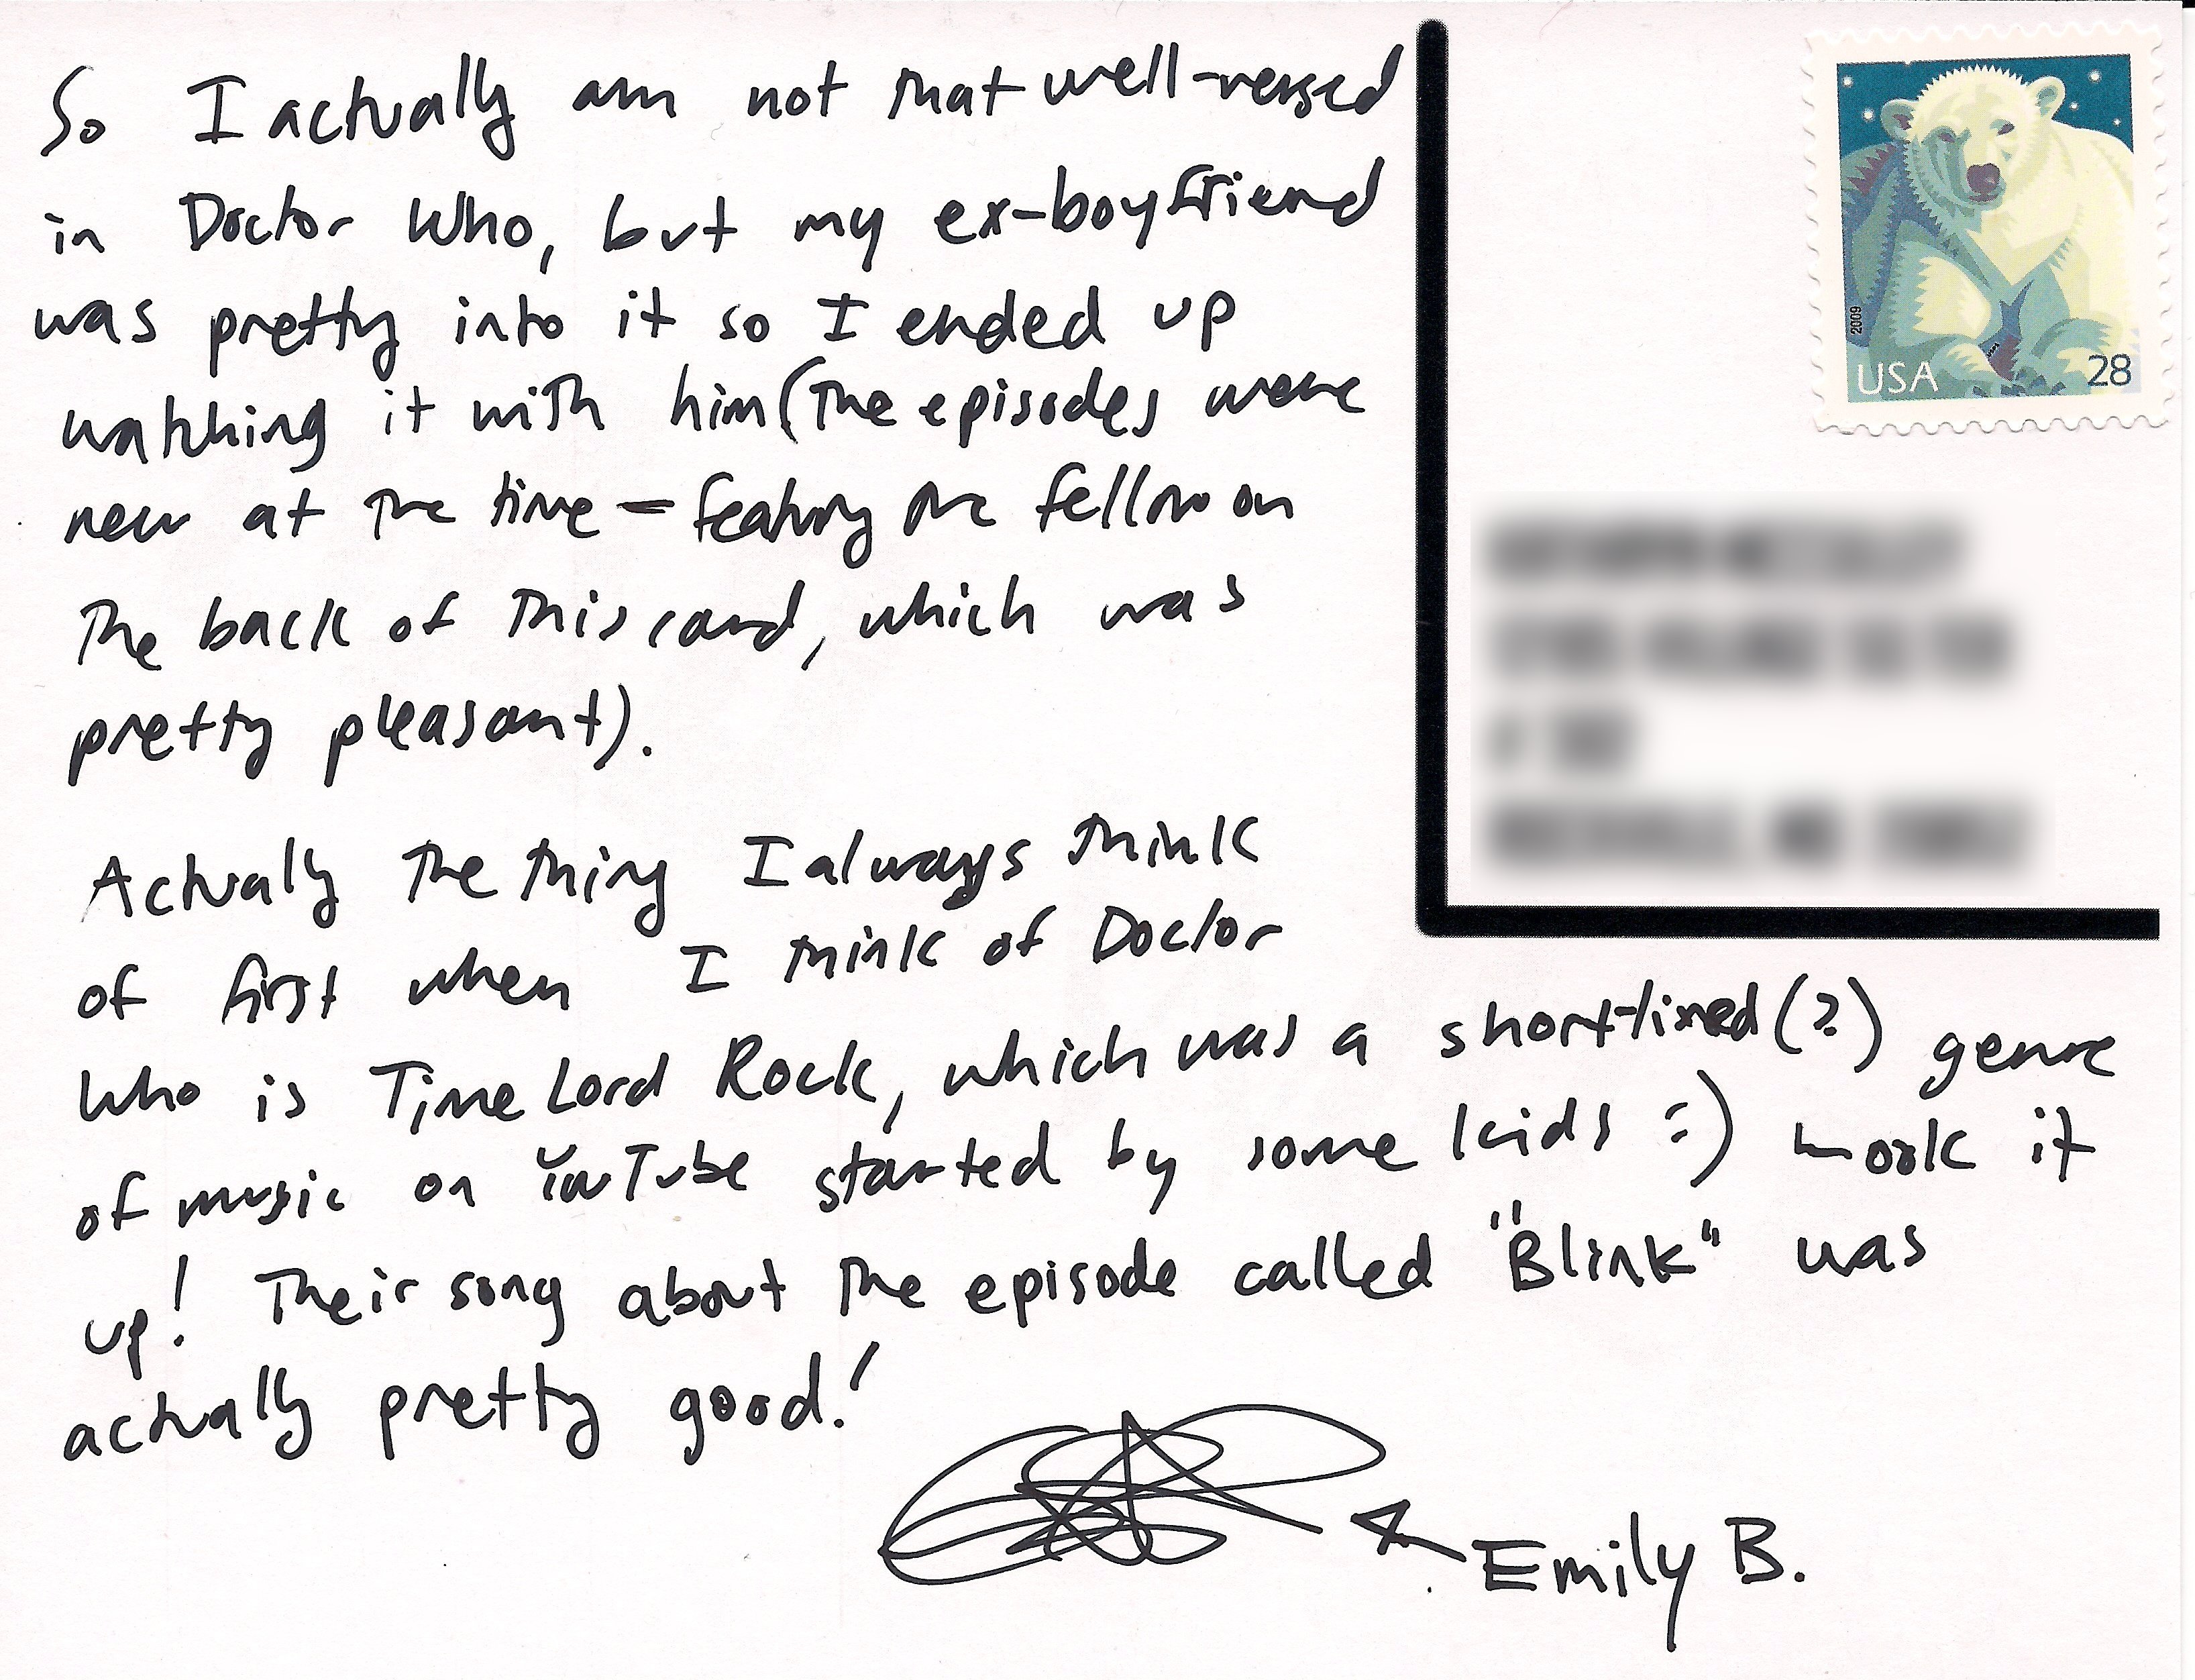 So I actually am not that well-versed
in Doctor Who, but my ex-boyfriend
was pretty into it so I ended up
watching it with him (the episodes were
new at the time – featuring the fellow on
the back of this card, which was
pretty pleasant).
Actually the thing I always think
of first when I think of Doctor
Who is Time Lord Rock, which was a short-lived (?) genre
of music on YouTube started by some kids =) Look it
up! Their song about the episode called "Blink" was
actually pretty good!
Emily B.
2009
USA 28